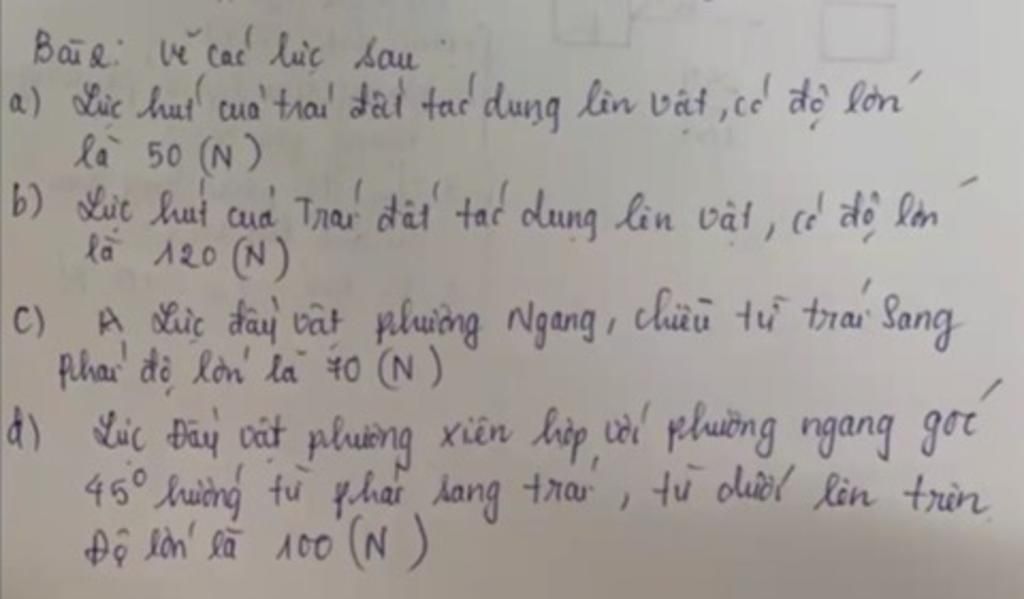 Bài 2: Vẽ các lực sau
a) Lực hút của trái đất tác dụng lên vật, có độ lớn
là 50 (N)
b) Lực hút của Trái đất tác dụng lên vật, có độ lớn
là 120 (N)
c) Lực đẩy vật phương Ngang, chiều từ trái Sang
phải độ lớn là 70 (N)
d) Lực Đẩy vật phương xiên hợp với phương ngang góc
45° hướng từ phải sang trái, từ dưới lên trên.
Độ lớn là 100 (N)